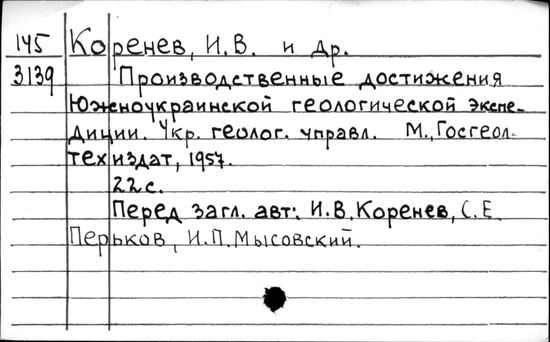 145 Коренев, И.В. и др.
3139 Производственные достижения
Южноукраинской геологической экспе-
диции. Укр. геолог. управл. М., Госгеол-
техиздат, 1957.
22 с.
Перед загл. авт.: И.В. Коренев, С.Е.
Перьков, И.П. Мысовский.